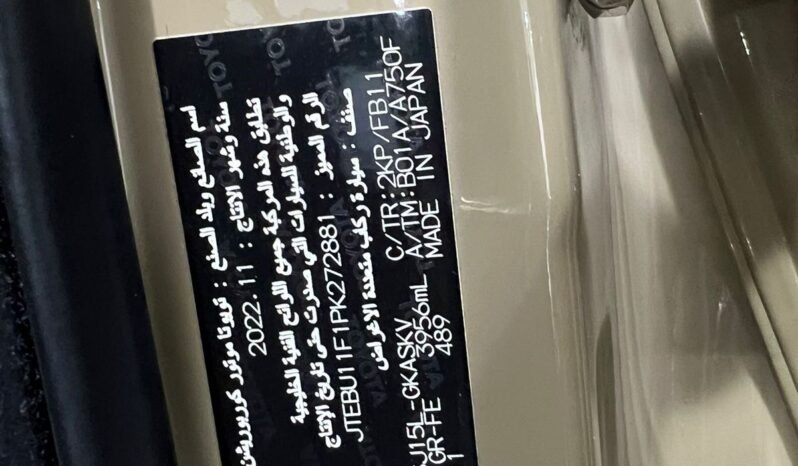 اسم الصانع وبلد الصنع : تويوتا موتور كوربوريشن
سنة وشهر الإنتاج : 2022.11
تطابق هذه المركبة جميع اللوائح الفنية الخليجية
والوطنية للسيارات التي صدرت حتى تاريخ الإنتاج
الرقم المميز : JTEBU11F1PK272881
صنف : سيارة ركاب متعددة الاغراض
J15L-GKASKV C/TR:2KP/FB11
GR-FE 3956mL A/TM:B01A/A750F
1 489 MADE IN JAPAN
TOYOTA